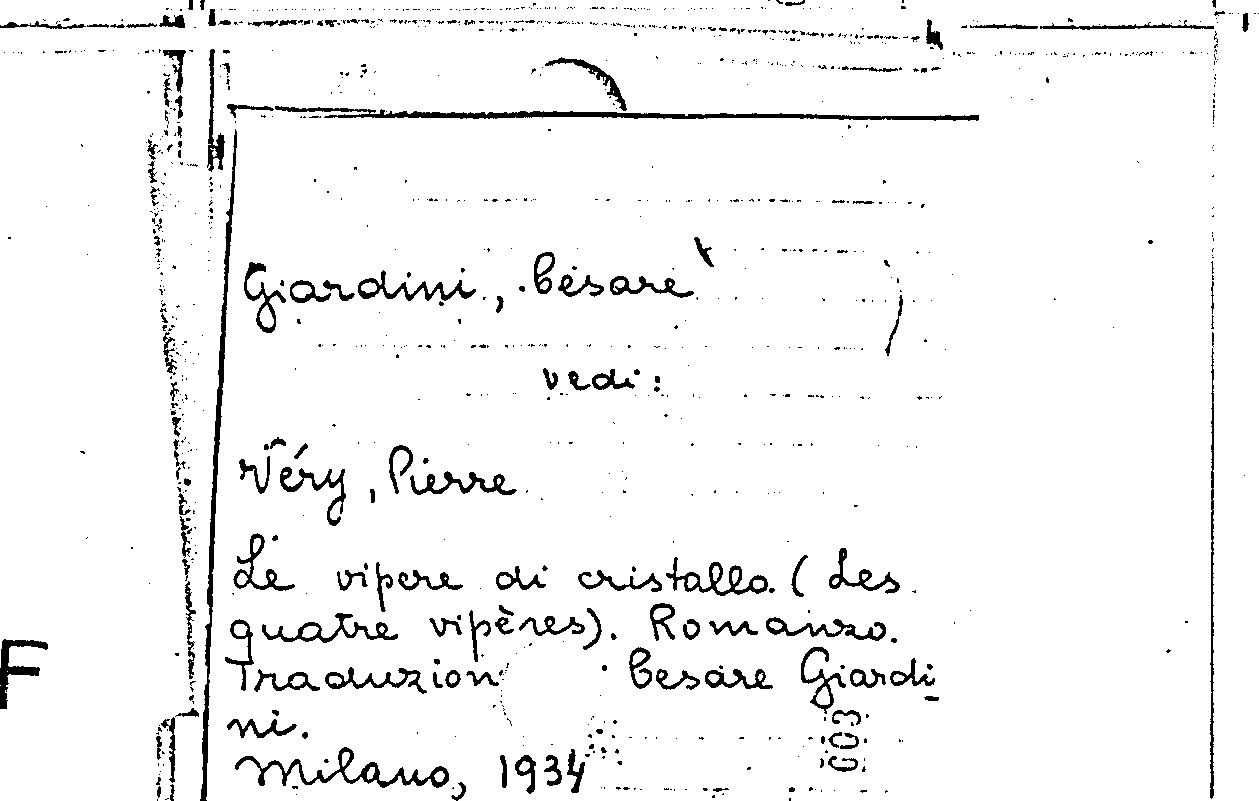 Giardini, Cesare
vedi:
Véry, Pierre
Le vipere di cristallo. (Les
quatre vipères). Romanzo.
Traduzion Cesare Giardi-
ni.
Milano, 1934
003
F